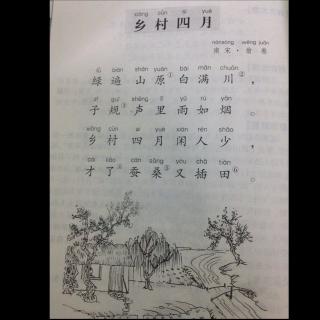 xiāng cūn sì yuè
乡村四月
nánsòng wēng juǎn
南宋·翁卷
lǜ biàn shān yuán bái mǎn chuān
绿遍山原①白满川②，
zǐ guī shēng lǐ yǔ rú yān
子规③声里雨如烟。
xiāng cūn sì yuè xián rén shǎo
乡村四月闲人少，
cái liǎo cán sāng yòu chā tián
才了④蚕桑⑤又插田⑥。